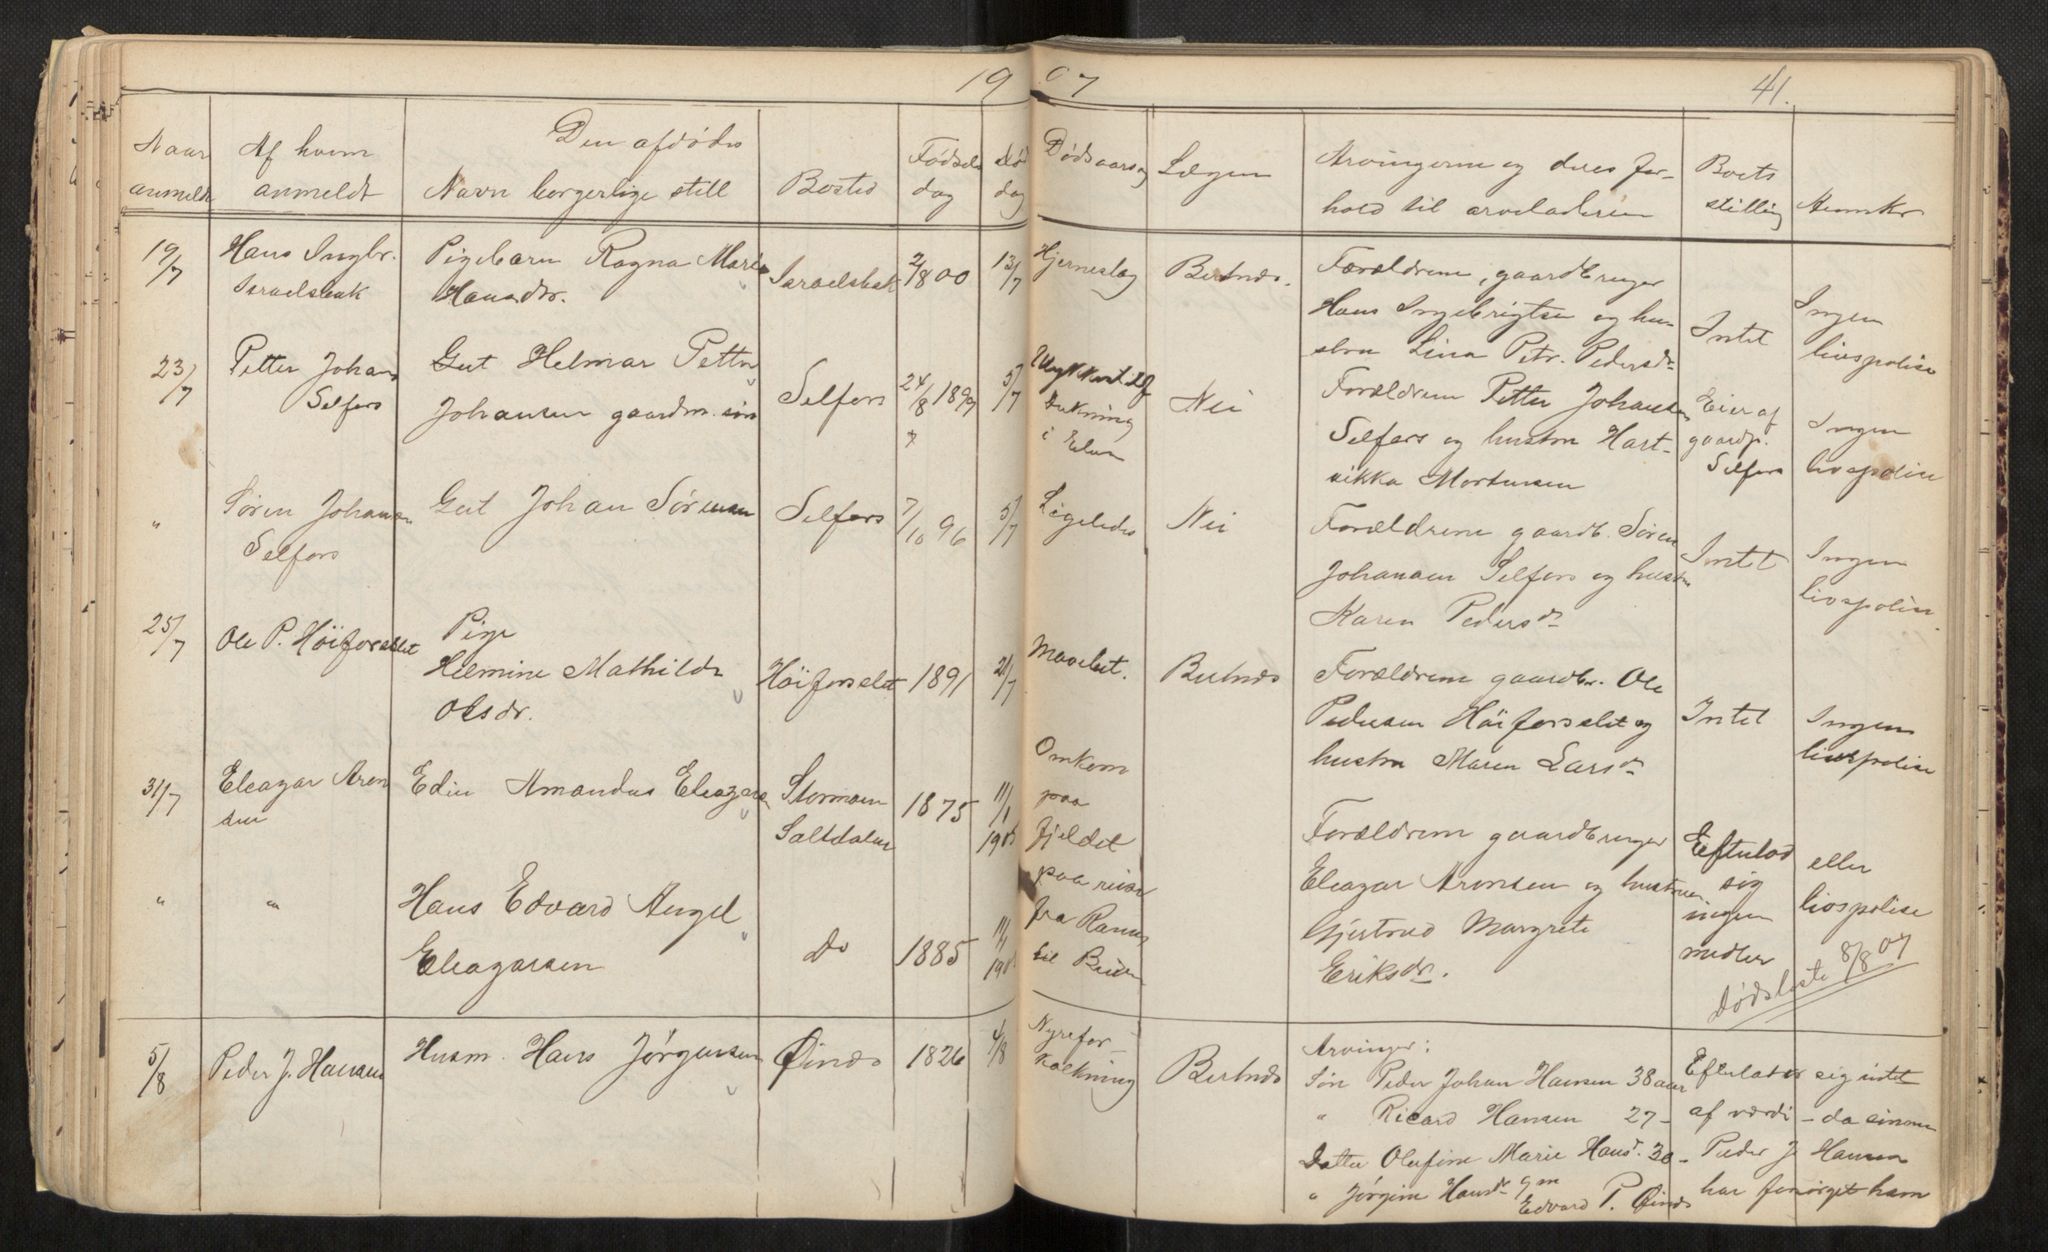 1907
41.
Naar anmeldt
Af hvem anmeldt
Den afdødes
Navn borgerlige still
Bosted
Fødsels dag
Død dag
Dødsaarsag
Lægen
Arvingerne og deres for-
hold til arveladeren
Boets stilling
Anmkr
19/7
Hans Ingbr.
Israelsbak
Pigebarn Ragna Marie
Hansdtr.
Israelsbak
2/8 00
13/7
Hjerneslag
Bertnæs.
Forældrene, gaardbruger
Hans Ingebrigtsen og hu-
stru Lina Petr. Pedersdr
Intet
Ingen
livspolise
23/7
Petter Johans
Selfors
Gut Helmar Petter
Johansen gaardm. søn
Selfors
24/8 1897
7
5/7
Ulykkestilf
Drukning
i Elven
Nei
Forældrene Petter Johansen
Selfors og hustru Hart-
vikka Mortensen
Eier af
gaardp.
Selfors
Ingen
livspolise
"
Søren Johansen
Selfors
Gut Johan Sørensen
Selfors
7/10 96
5/7
Ligeledes
Nei
Forældrene gaardb. Søren
Johansen Selfors og hustru
Karen Pedersdr
Intet
Ingen
livspolise.
25/7
Ole P. Høiforslet
Pige
Helmine Mathilde
Olsdr.
Høiforslet
1891
21/7
Bertnæs
Forældrene gaardbr. Ole
Pedersen Høiforslet og
hustru Maren Larsdr
Intet
Ingen
livspolise
31/7
Eleazar Aron
sen
Edin Amandus Eleazars
Stormoen
Saltdalen
1875
11/1
1905
Omkom
paa
fjeldet
paa reise
fra Ranen
til Beiern
Forældrene gaardbruger
Eleazar Aronsen og hustruen
Gjertrud Margrete
Eriksdr.
Efterlod
sig
ingen
midler
eller
livspolise
"
"
Hans Edvard Angel
Eleazarsen
Do
1885
11/1
1905
Dødsliste 8/8 07
5/8
Peder J. Hansen
Husm. Hans Jørgensen
Øinæs
1826
4/8
Nyrefor-
kalkning
Bertnæs
Arvinger:
Søn Peder Johan Hansen 38 aar
" Ricard Hansen 27 -
Datter Olufine Marie Hansdr. 30 -
" Jørgine Hansdr gm
Edvard P. Øinæs
Efterlader sig intet
af værdi - da sønnen
Peder J. Hansen
har forsørget ham